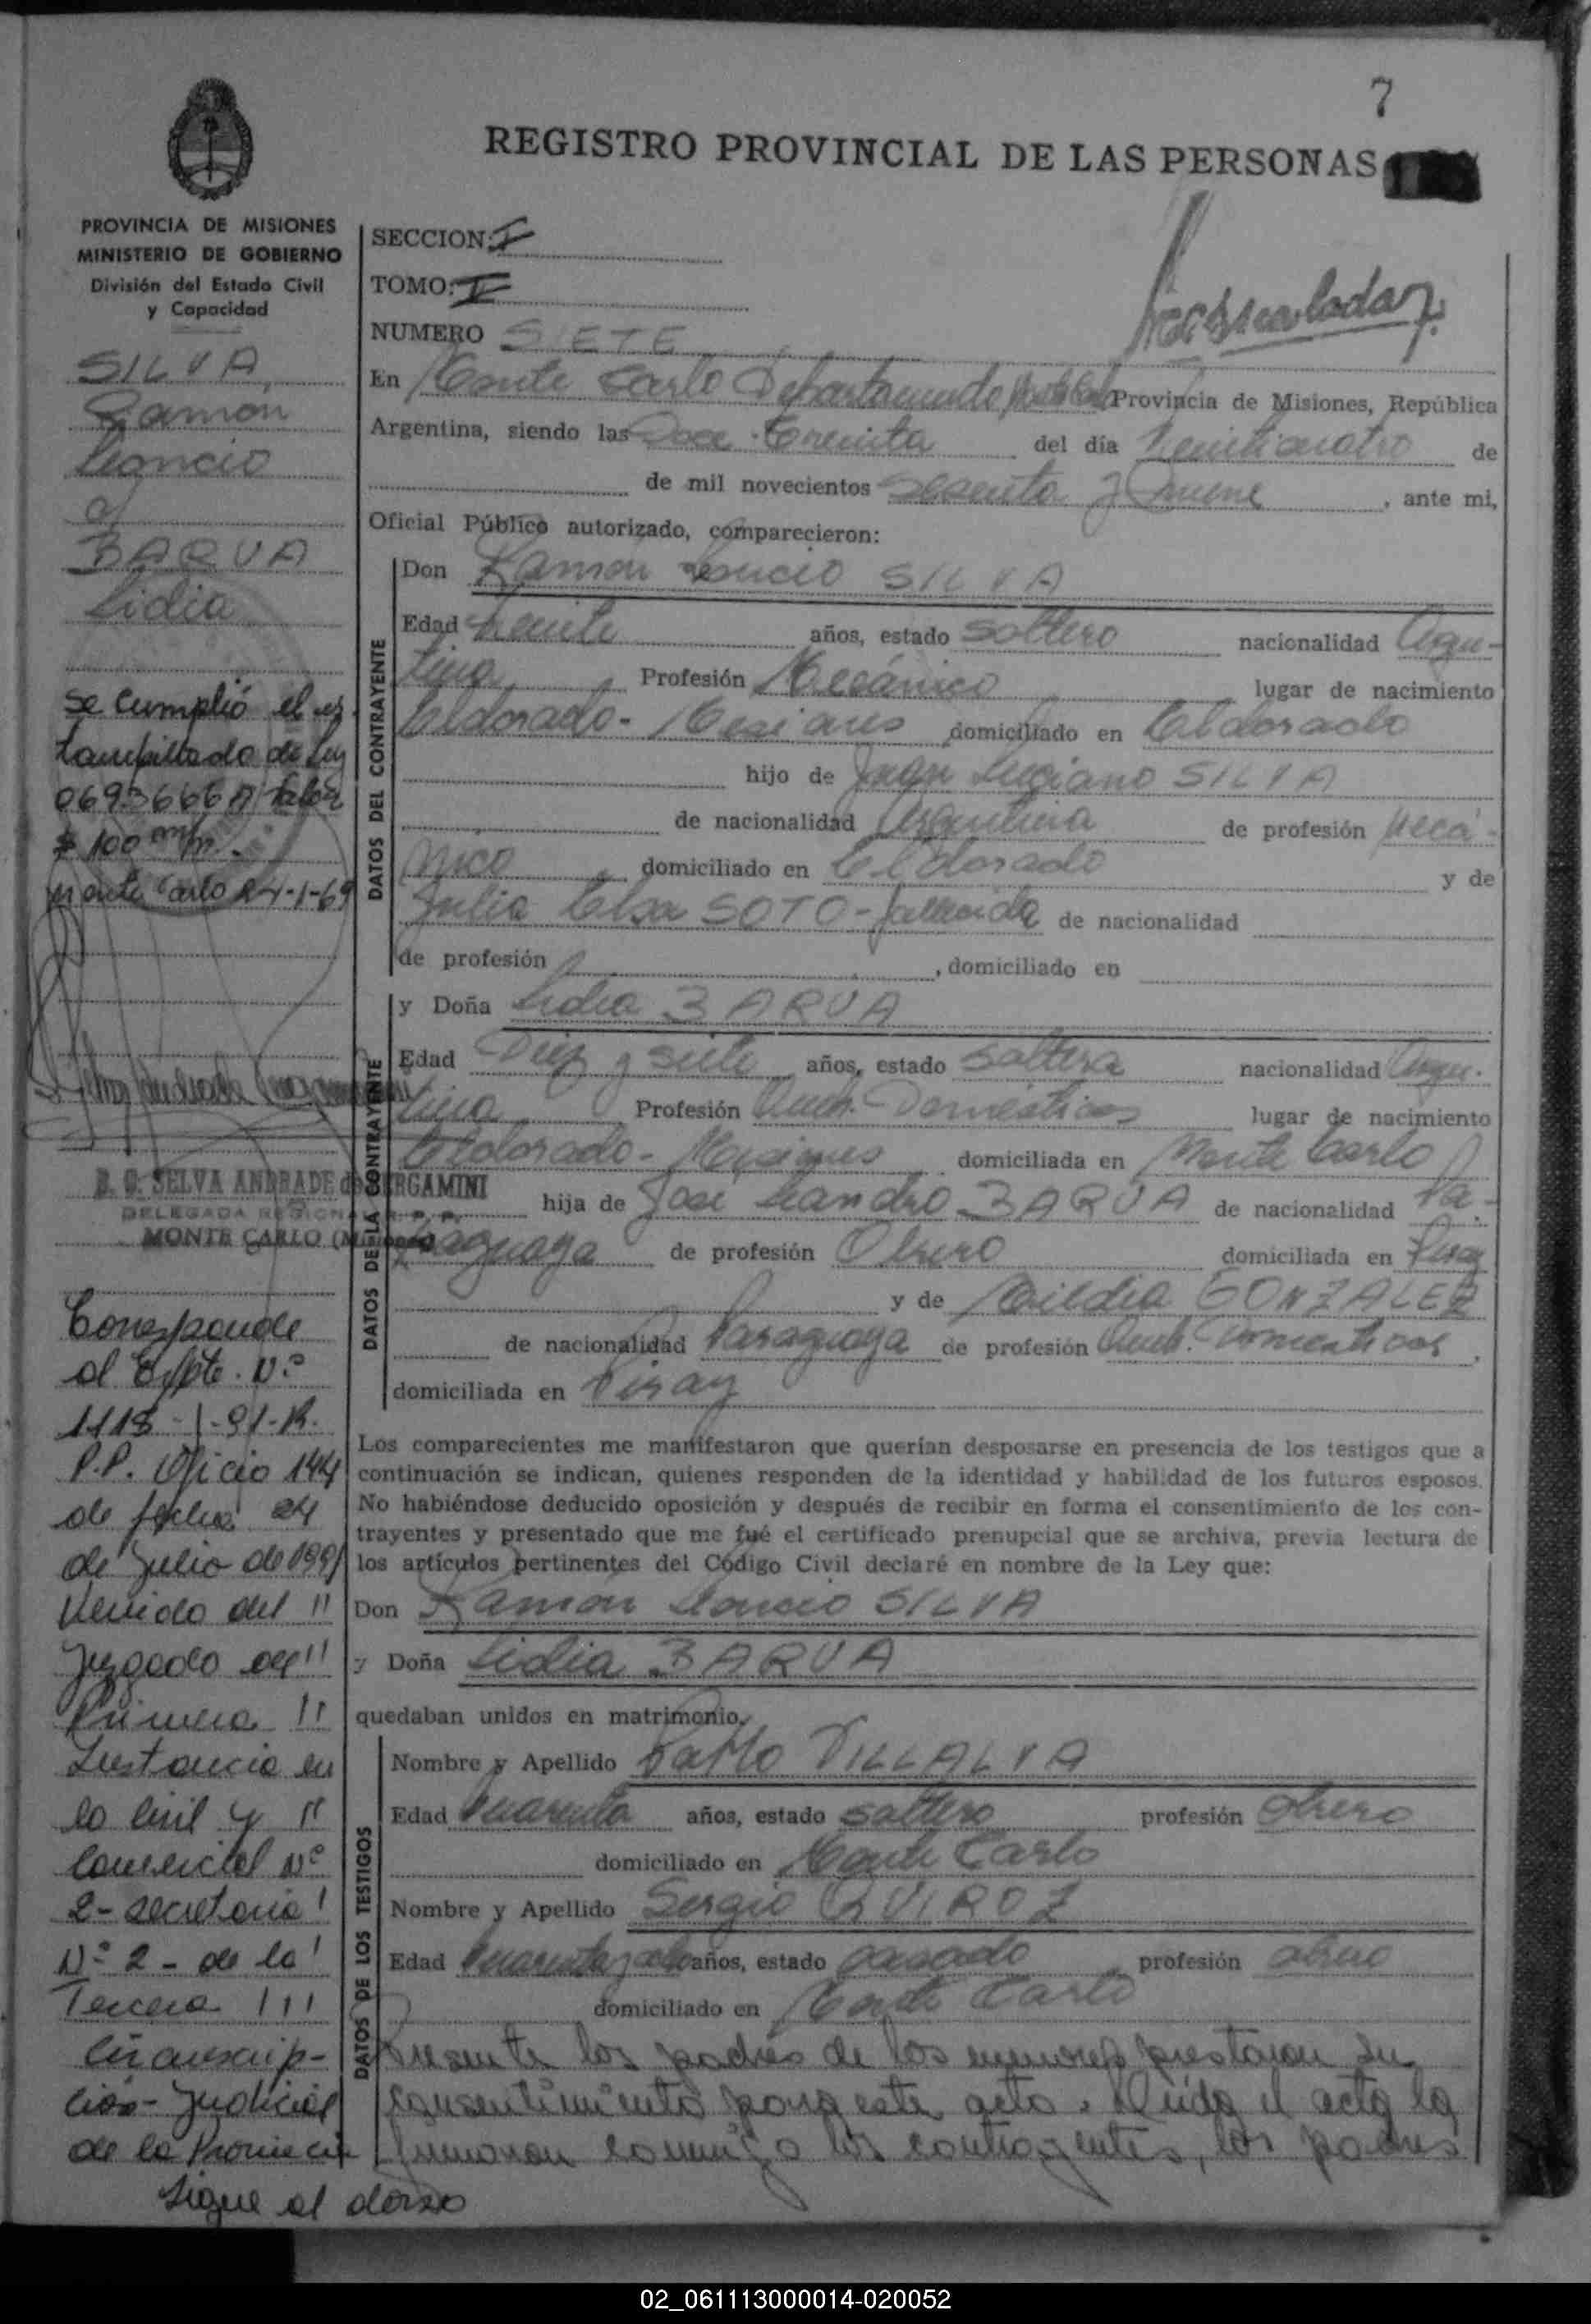 7
REGISTRO PROVINCIAL DE LAS PERSONAS
PROVINCIA DE MISIONES
MINISTERIO DE GOBIERNO
División del Estado Civil
y Capacidad
SILVA
Ramón
y
BARUA
Lidia
Se cumplió el es
tampillado de Ley
0693666 A Valor
$ 100 m/n.
Monte Carlo 24-1-69
B. G. SELVA ANDRADE de BERGAMINI
DELEGADA REGIONAL R. P. P.
MONTE CARLO (Misiones)
Corresponde
al Expte. Nº
1118 - 1-91-R.
P.P. Oficio 144
de fecha 24
de Julio de 1991
Venido del "
Juzgado de "
Primera "
Instancia en
lo Civil y "
Comercial Nº
2- Secretaria !
Nº 2 - de la !
Tercera !!!
Circunscrip-
ción- Judicial
de la Provincia
Sigue al dorso
SECCION: I
TOMO: I
NUMERO SIETE
En Monte Carlo Departamento Monte Carlo Provincia de Misiones, República
Argentina, siendo las Doce Treinta del día Veinticuatro de
de mil novecientos Sesenta y nueve, ante mi,
Oficial Público autorizado, comparecieron:
DATOS DEL CONTRAYENTE
Don Ramón SILVA
Edad Veinte años, estado Soltero nacionalidad Argen-
tina Profesión Mecánico lugar de nacimiento
Eldorado - Misiones domiciliado en Eldorado
hijo de Juan Luciano SILVA
de nacionalidad Argentina de profesión Mecá-
nico domiciliado en Eldorado y de
Julia Elsa SOTO - fallecida de nacionalidad
de profesión , domiciliado en
DATOS DE LA CONTRAYENTE
y Doña Lidia BARUA
Edad Diez y siete años, estado Soltera nacionalidad Argen-
tina Profesión Queh. Domésticos lugar de nacimiento
Eldorado - Misiones domiciliada en Monte Carlo
hija de José Leandro BARUA de nacionalidad Pa-
raguaya de profesión Obrero domiciliada en Piray
y de GONZALEZ
de nacionalidad Paraguaya de profesión Queh. Domesticos,
domiciliada en Piray
Los comparecientes me manifestaron que querían desposarse en presencia de los testigos que a
continuación se indican, quienes responden de la identidad y habilidad de los futuros esposos.
No habiéndose deducido oposición y después de recibir en forma el consentimiento de los con-
trayentes y presentado que me fué el certificado prenupcial que se archiva, previa lectura de
los artículos pertinentes del Código Civil declaré en nombre de la Ley que:
Don Ramón SILVA
y Doña Lidia BARUA
quedaban unidos en matrimonio.
DATOS DE LOS TESTIGOS
Nombre y Apellido Pablo VILLALVA
Edad Cuarenta años, estado soltero profesión obrero
domiciliado en Monte Carlo
Nombre y Apellido Sergio QUIROZ
Edad Cuarenta y años, estado casado profesión obrero
domiciliado en Monte Carlo
Presente los padres de los menores prestaron su
consentimiento para este acto. Leída el acta la
firmaron conmigo los contrayentes, los padres
02_061113000014-020052